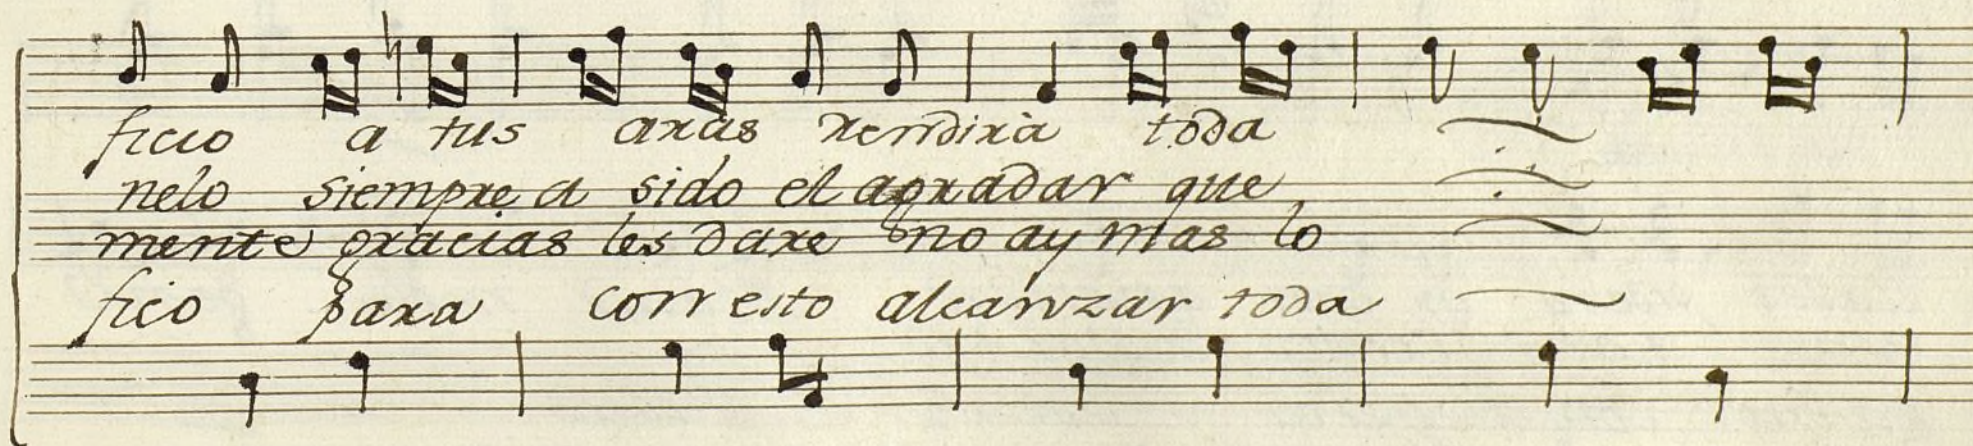 ficio a tus aras rendirà toda
nelo siempre a sido el agradar que
mente gracias les dare no ay mas lo
fico para con esto alcanzar toda